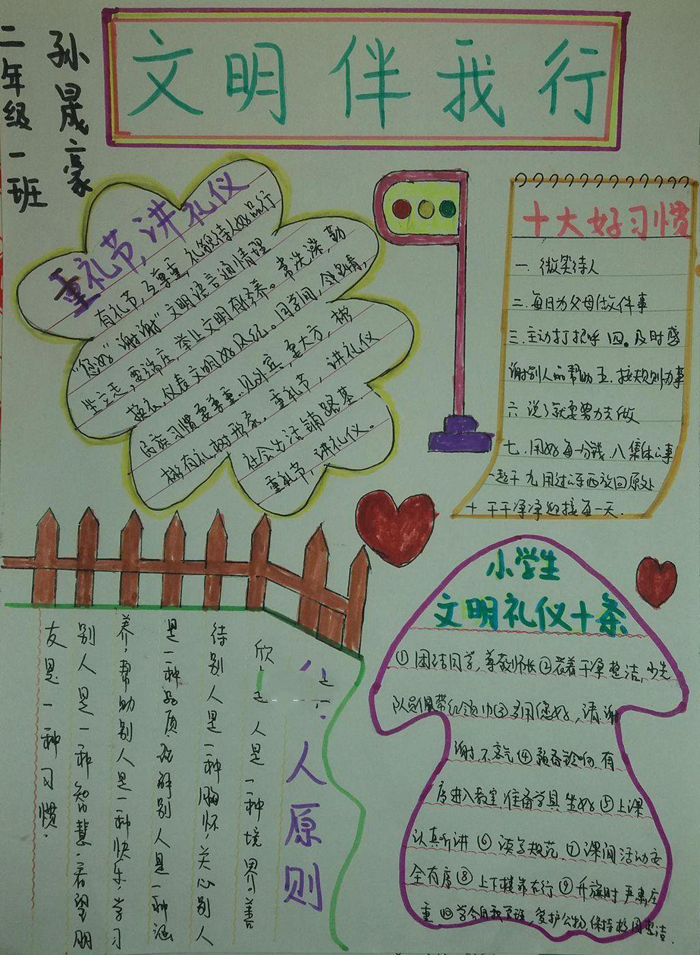 文明伴我行
孙晟豪
二年级一班
重礼节,讲礼仪
有礼节,互尊重,礼貌待人好品行
"您好""谢谢"文明语言润情理
坐立走,要端庄,举止文明有修养。常洗澡,勤
换衣,仪表文明好风纪。同学间,邻距肩,
民族习惯要尊重。见外宾,要大方,彬
彬有礼树形象。重礼节,讲礼仪
社会生活铺路基
重礼节,讲礼仪。
十大好习惯
一.微笑待人
二.每日为父母做件事
三.主动打招呼 四。及时感
谢别人的帮助 五.按规则办事
六 说了就要努力去做
七.用好每一分钱.八集体的事
一起干 九 用过的东西放回原处
十 干干净净迎接每一天.
小学生
文明礼仪十条
①团结同学,尊敬师长②衣着干净整洁,少先
队员佩带红领巾③多用您好,请,谢
谢,不客气④预备铃响,有
序进入教室,准备学具,坐好⑤上课
认真听讲⑥读写规范.⑦课间活动安
全有序⑧上下楼靠右行⑨升旗时严肃庄
重⑩学会自我管理,爱护公物,保持校园整洁.
人原则
欣 人是一种境界,善
待别人是一种胸怀,关心别人
是一种品质,理解别人是一种涵
养,帮助别人是一种快乐,学习
别人是一种智慧,看望朋
友是一种习惯.